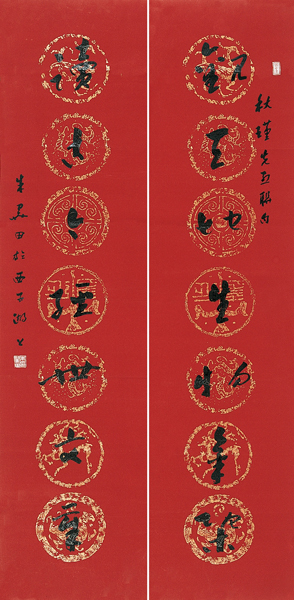 觀天地生物氣象
秋瑾先烈聯句
讀古今經世文章
朱关田於西子湖上